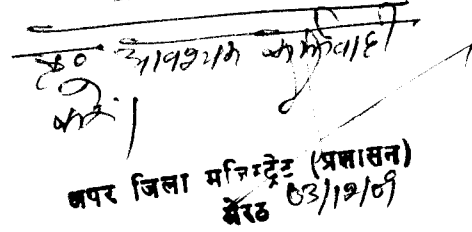 कृ० आवश्यक कार्यवाही
करें।
अपर जिला मजिस्ट्रेट (प्रशासन)
मेरठ 03/12/09